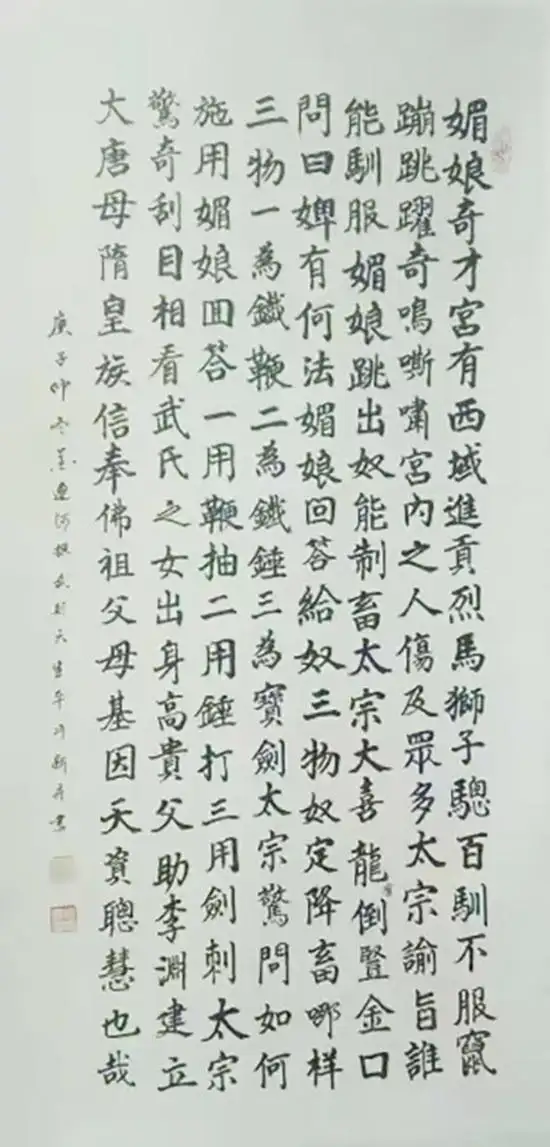 媚娘奇才宮有西域進貢烈馬獅子驄百馴不服竄
蹦跳躍奇鳴嘶嘯宮内之人傷及眾多太宗諭旨誰
能馴服媚娘跳出奴能制畜太宗大喜龍倒豎金口
問曰婢有何法媚娘回答給奴三物奴定降畜哪样
三物一為鐵鞭二為鐵錘三為寶劍太宗驚問如何
施用媚娘回答一用鞭抽二用錘打三用劍刺太宗
驚奇刮目相看武氏之女出身高貴父助李淵建立
大唐母隋皇族信奉佛祖父母基因天資聰慧也哉
庚子仲冬 武則天生平 新